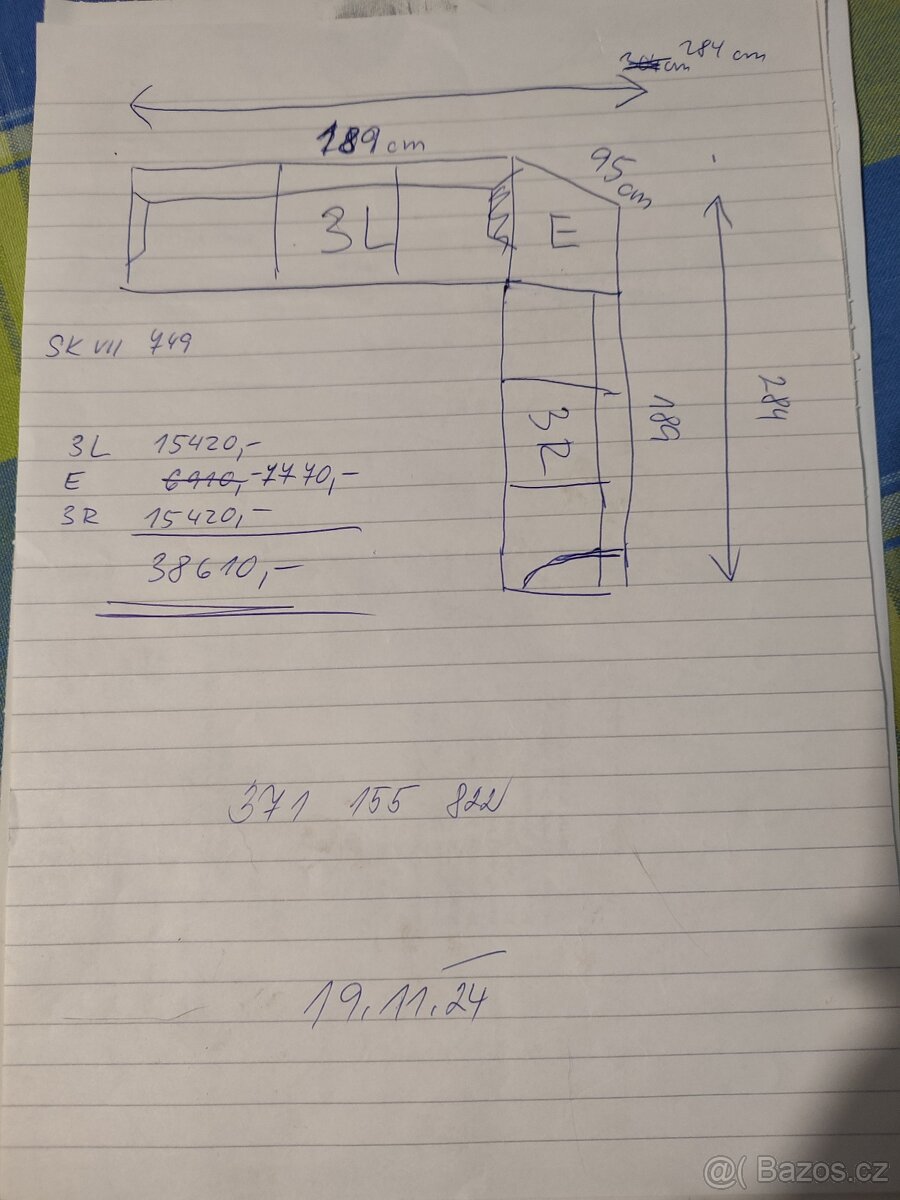 284 cm
189 cm
95 cm
3L
E
SK VII 749
284
189
3R
3L 15420,-
E 6910,- 7770,-
3R 15420,-
38610,-
371 155 822
19.11.24
@( Bazos.cz